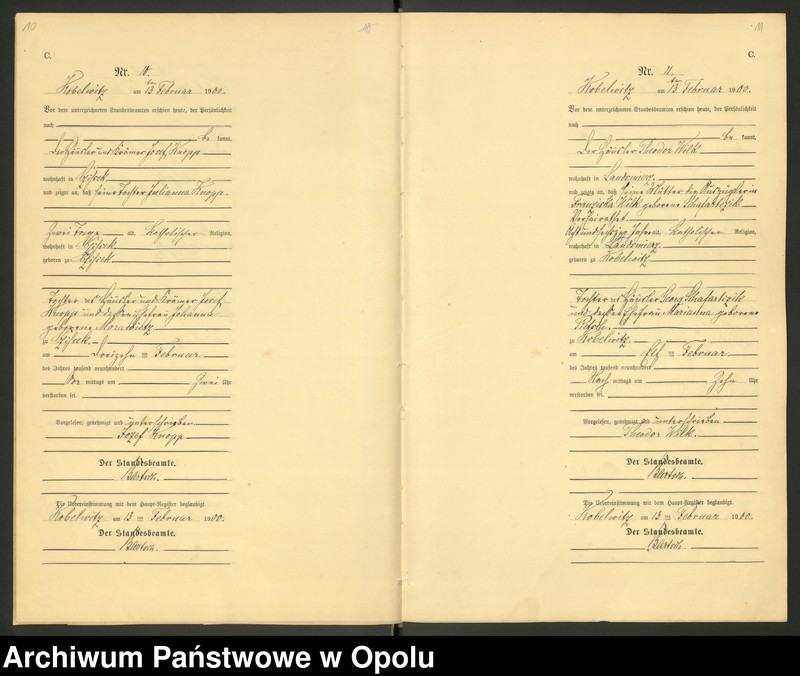 10
C.
Nr. 10.
Kobelwitz am 13 ten Februar 1900.
Vor dem unterzeichneten Standesbeamten erschien heute, der Persönlichkeit
nach
be kannt,
der Häusler und Krämer Josef Knopp
wohnhaft in Czissek
und zeigte an, daß seine Tochter Julianna Knopp
zwei Tage alt, katholischer Religion,
wohnhaft in Czissek
geboren zu Czissek
Tochter des Häusler und Krämer Josef
Knopp und dessen Ehefrau Johanna
geborene Morawietz
in Czissek.
am dreizehn ten Februar
des Jahres tausend neunhundert
Vor mittags um zwei Uhr
verstorben sei.
Vorgelesen, genehmigt und unterschrieben
Jozef Knopp
Der Standesbeamte.
Bartsch.
Die Uebereinstimmung mit dem Haupt-Register beglaubigt.
Kobelwitz am 13 ten Februar 1900.
Der Standesbeamte.
Bartsch.
11
C.
Nr. 11.
Kobelwitz am 13 ten Februar 1900.
Vor dem unterzeichneten Standesbeamten erschien heute, der Persönlichkeit
nach
be kannt,
der Häusler Theodor Wilk
wohnhaft in Landsmierz
und zeigte an, daß seine Mutter die Auszüglerin
Franziska Wilk geborene
verheirathet.
Achtundsechzig Jahre alt, katholischer Religion,
wohnhaft in Landsmierz
geboren zu Kobelwitz
Tochter des Häusler Georg
und dessen Ehefrau Marianna geborene
zu Kobelwitz.
am Elf ten Februar
des Jahres tausend neunhundert
Nach mittags um Zehn Uhr
verstorben sei.
Vorgelesen, genehmigt und unterschrieben
Theodor Wilk.
Der Standesbeamte.
Bartsch.
Die Uebereinstimmung mit dem Haupt-Register beglaubigt.
Kobelwitz am 13 ten Februar 1900.
Der Standesbeamte.
Bartsch.
Archiwum Państwowe w Opolu